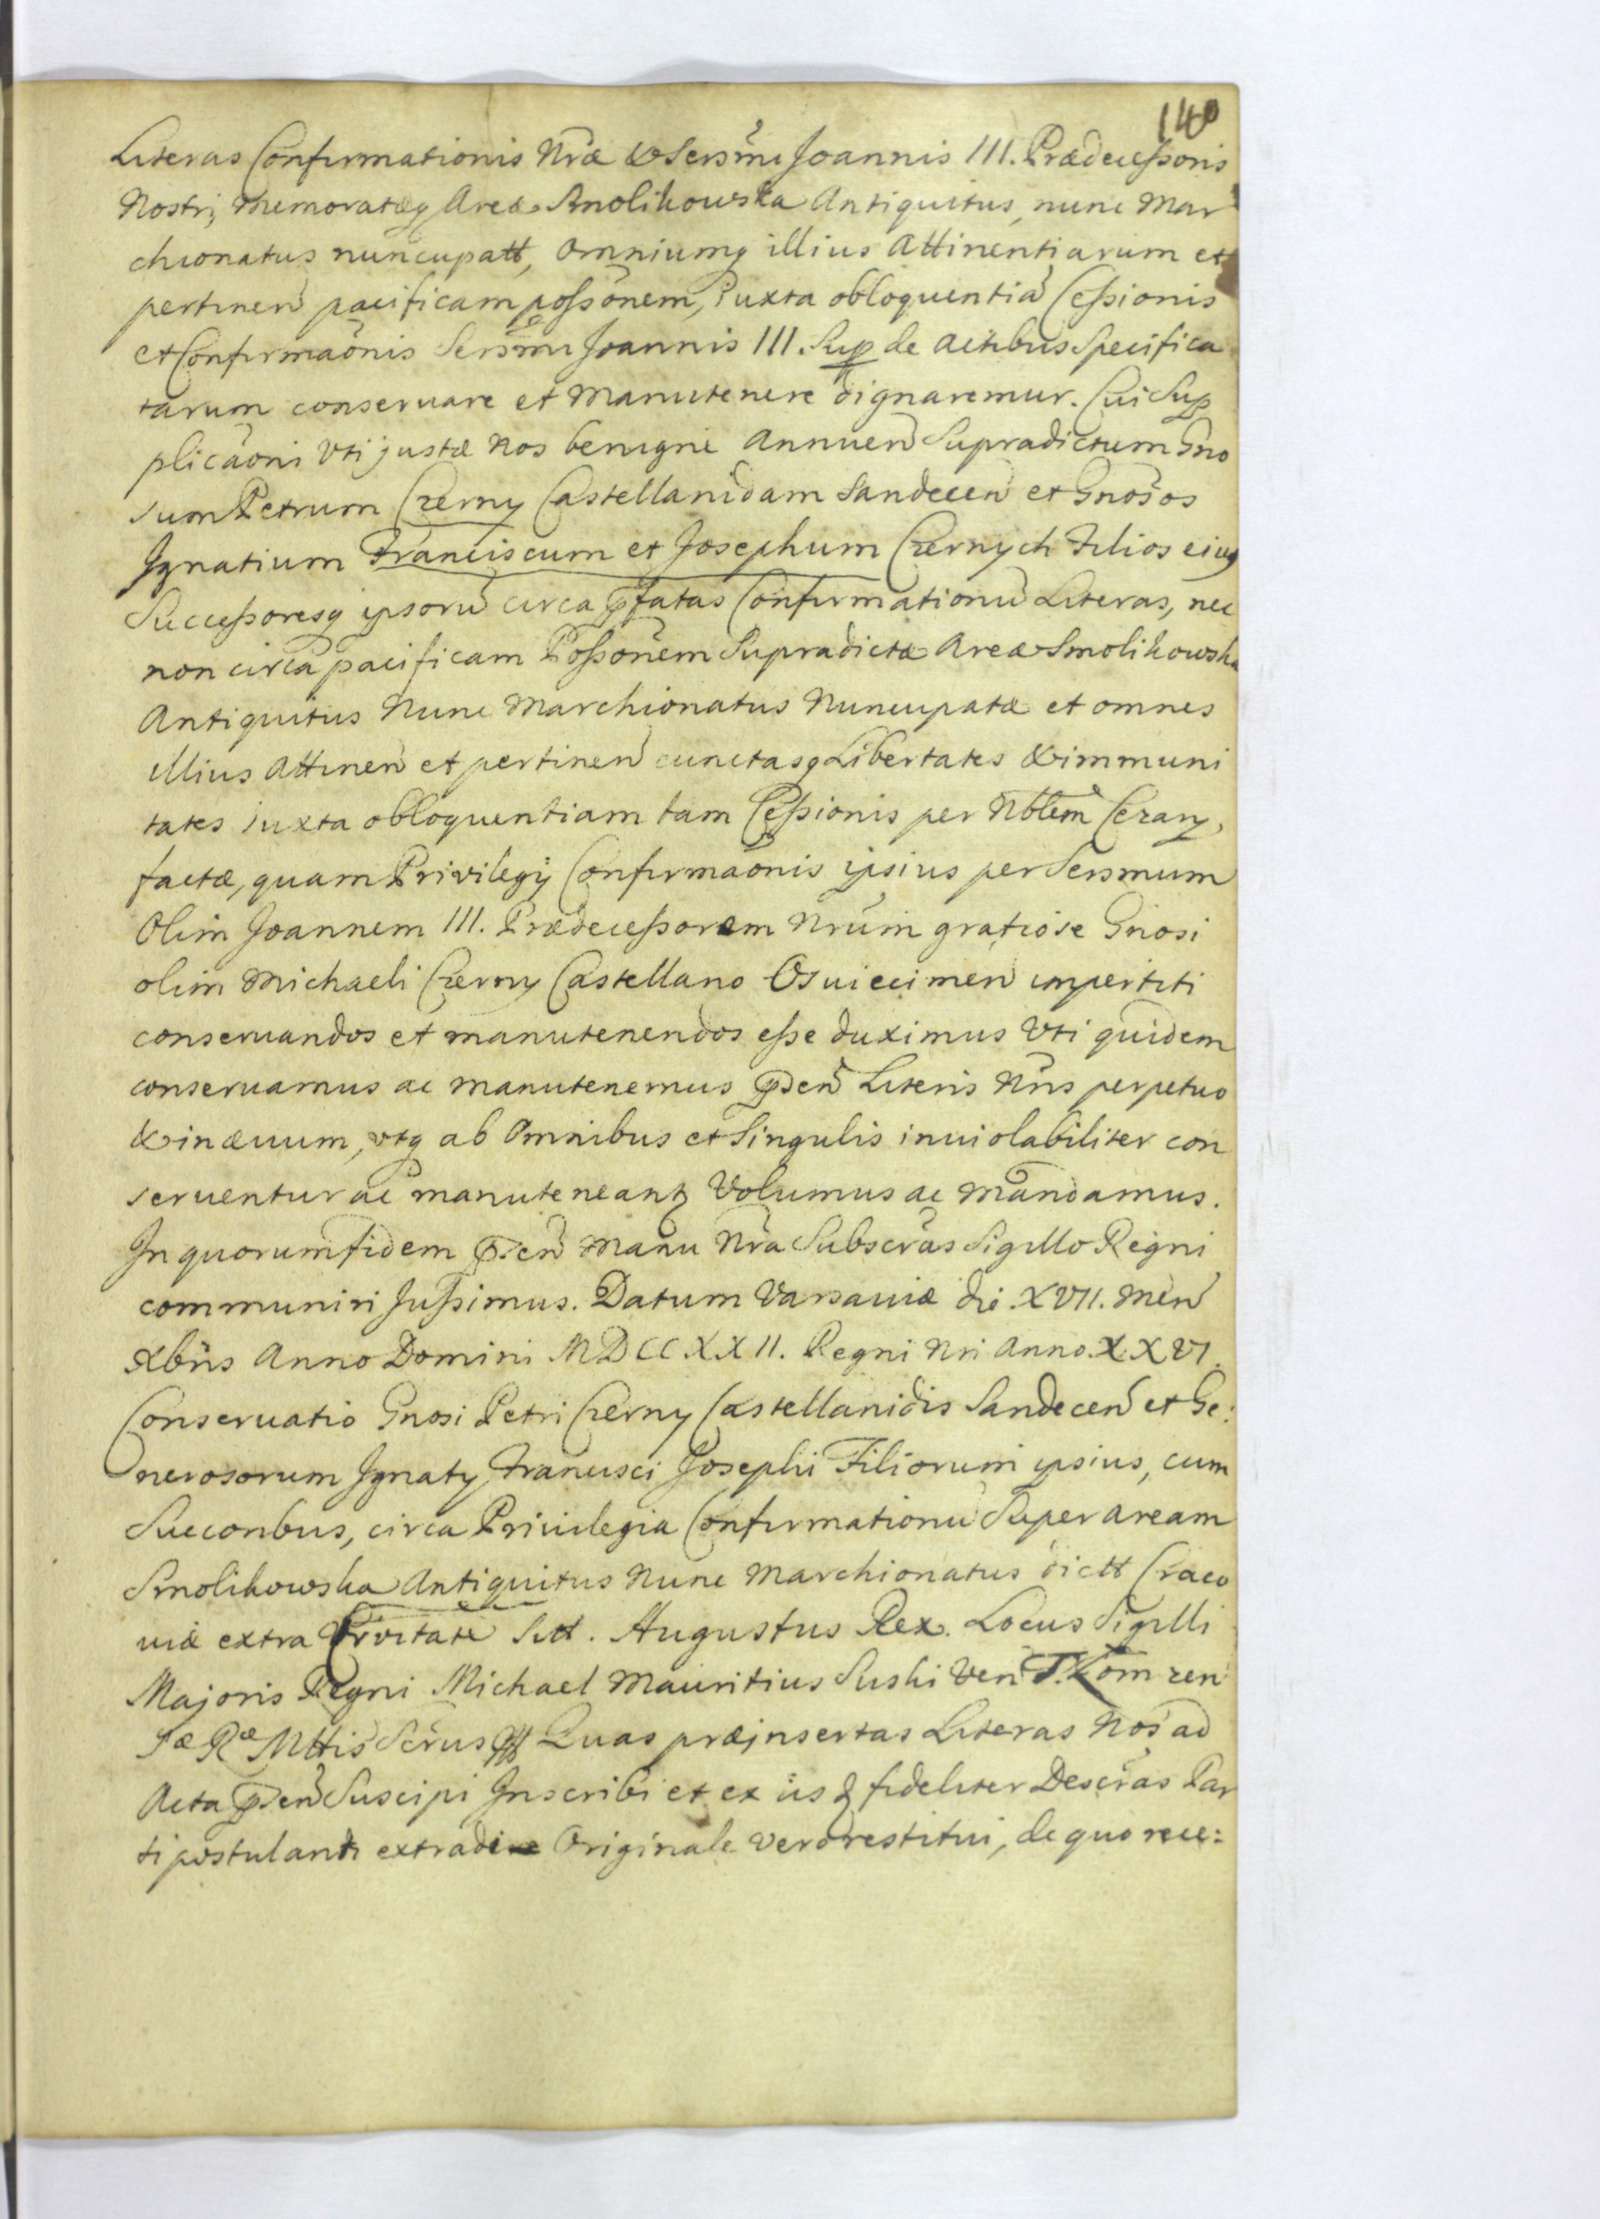 140
Literas Confirmationis Nrae & Sersmi Joannis III. Praedecessoris
Nostri, memorataeq Areae Smolikowska Antiquitus, nunc Mar
chionatus nuncupatt, Omniumq illius Attinentiarum et
pertinen pacificam possonem, iuxta obloquentia Cessionis
et Confirmaonis Sersmi Joannis III. Sup de actibus Specifica
tarum conseruare et Manutenere dignaremur. Cui Sup
plicaoni Vti justae Nos benigne Annuen Supradictum Gno
sum Petrum Czerny Castellanidam Sandecen et Gnosos
Ignatium Franciscum et Josephum Czernych Filios eius
Successoresq ipsoru circa pfatas Confirmationu Literas, nec
non circa pacificam Possonem Supradictae Areae Smolikowska
Antiquitus Nunc Marchionatus Nuncupatae et omnes
illius Attinen et pertinen cunctasq Libertates & immuni
tates iuxta obloquentiam tam Cessionis per Nblem Cezary,
factae, quam Privilegij Confirmaonis ipsius per Sersmum
Olim Joannem III. Praedecessorem Nrum gratiose Gnosi
olim Michaeli Czerny Castellano Osuiecimen impertiti
conseruandos et manutenendos esse duximus Vti quidem
conseruamus ac manutenemus pden Literis Nris perpetuo
& in aeuum, vtq ab Omnibus et Singulis inuiolabiliter con
seruentur ac manuteneantz Volumus ac mandamus.
In quorum fidem pden Manu Nra Subscras Sigillo Regni
communiri Jussimus. Datum Varsauiae die. XVII. Men
Xbris Anno Domini MDCCXXII. Regni Nri Anno. XXVI.
Conseruatio Gnosi Petri Czerny Castellanidis Sandecen et Ge:
nerosorum Ignaty, Francisci Josephi Filiorum ipsius, cum
Succonbus, circa Priuilegia Confirmationu Super Aream
Smolikowska Antiquitus Nunc Marchionatus dictt Craco
uiae extra Civitate Sitt. Augustus Rex. Locus Sigilli
Majoris Regni Michael Mauritius Suski Ven T. Com zen
Sae Rae Mttis Scrus Quas praeinsertas Literas Nos ad
Acta pden Suscipi Inscribi et ex iis fideliter Descras Par
ti postulanti extradi Originale vero restitui, de quo rece: